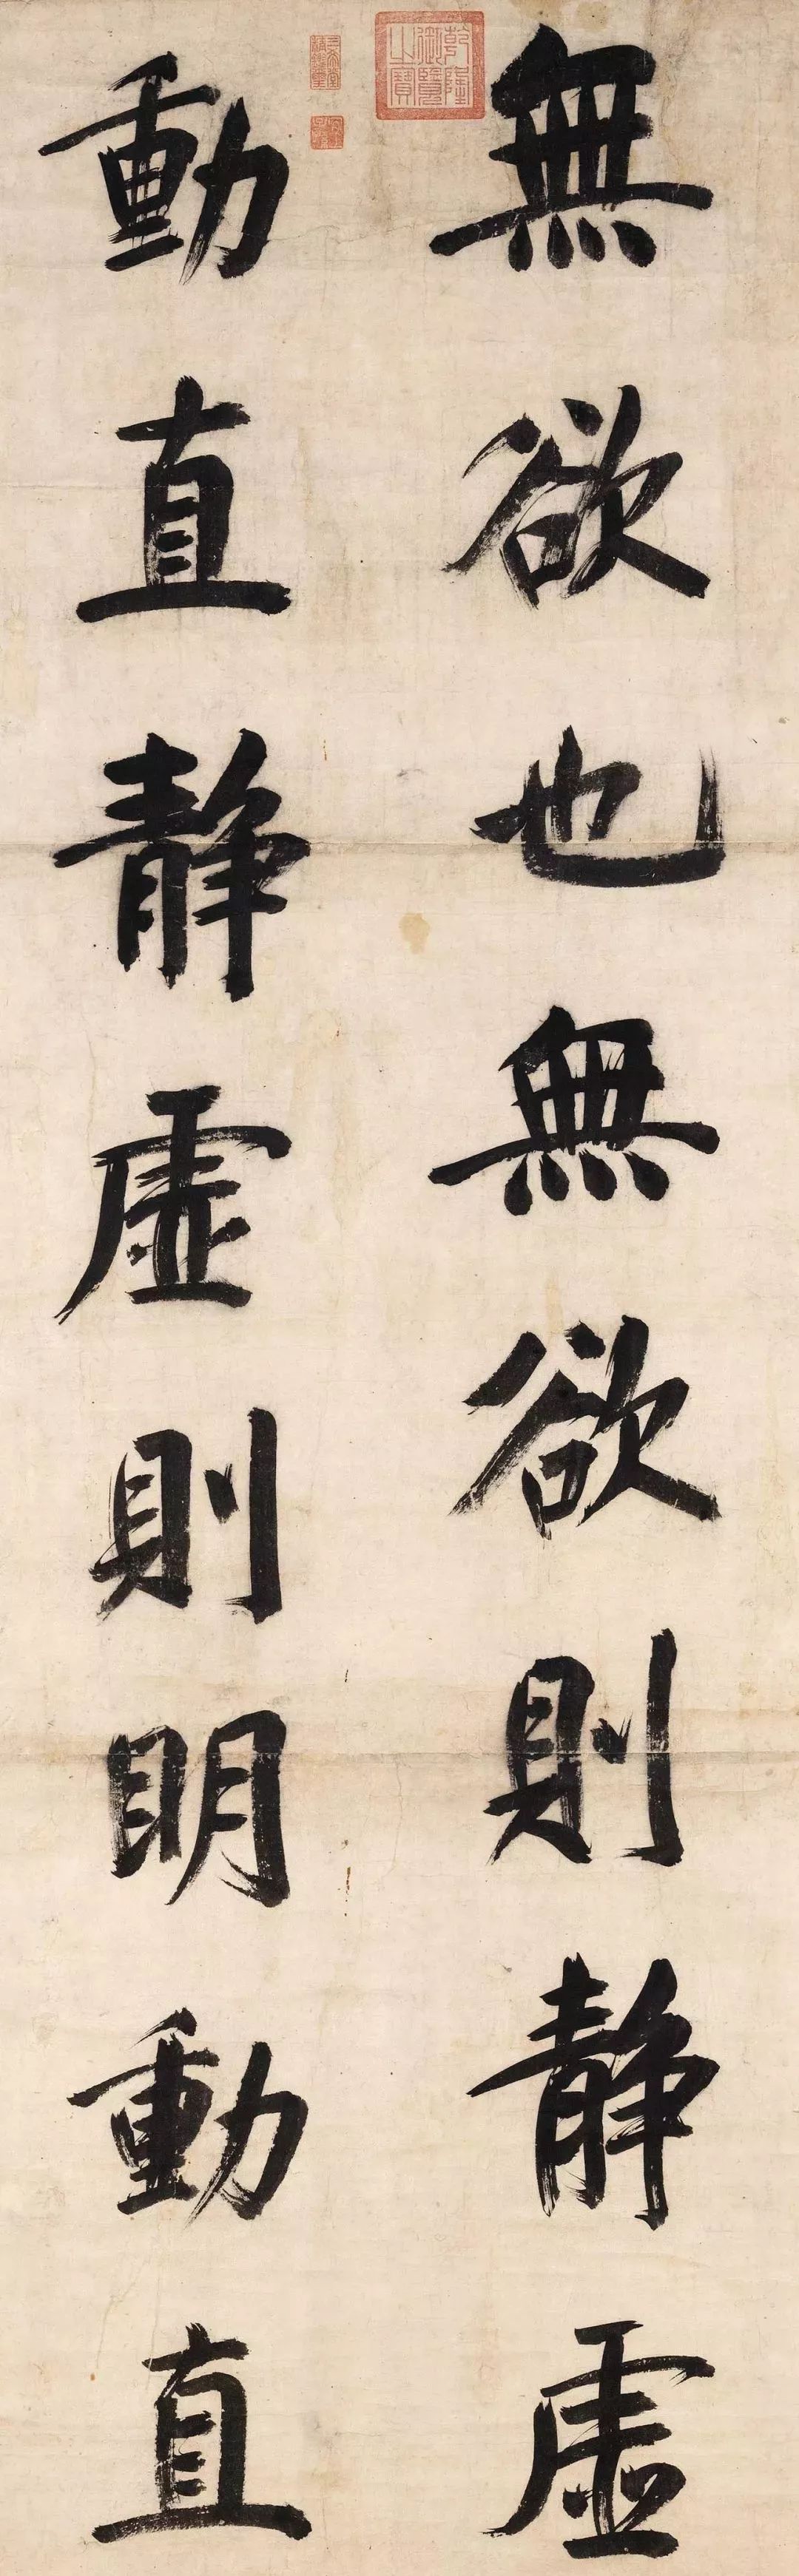 無欲也無欲則静虛
動直静虛則明動直
乾隆御覽之寶